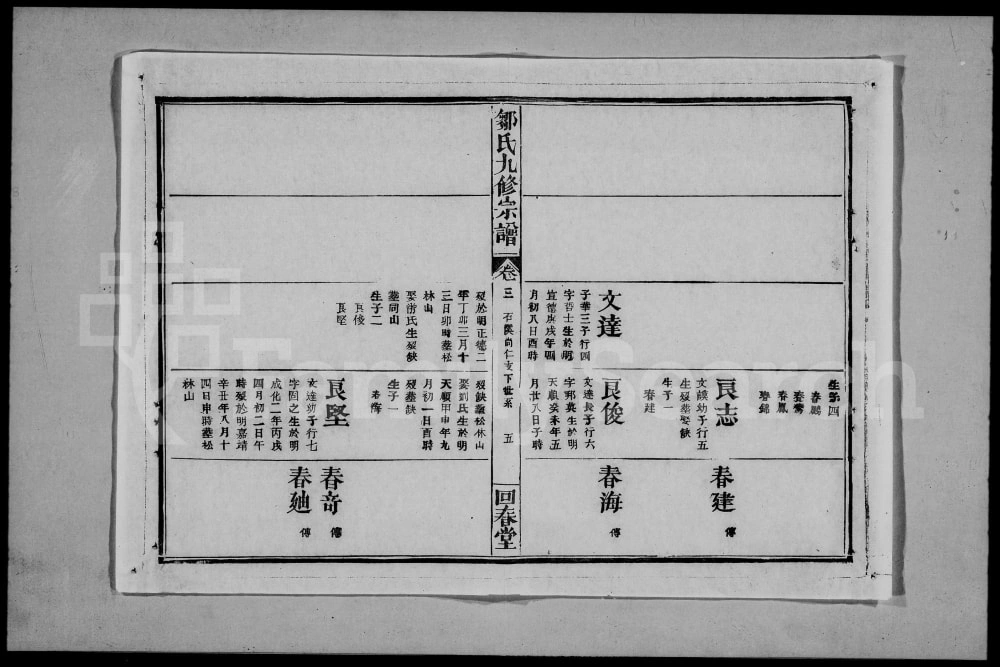 生子四
春鵬
春鸞
春鳳
春錦
良志
文謨幼子行五
生歿葬娶缺
生子一
春建
春建
傳
文達
子華三子行四
字哲士生於明
宣德庚戌年四
月初八日酉時
良俊
文達長子行六
字邦冀生於明
天順癸未年五
月廿八日子時
春海
傳
鄒氏九修宗譜
卷三
石溪尚仁支下世系
五
回春堂
歿於明正德二
年丁卯三月十
三日卯時葬松
林山
娶謝氏生歿缺
葬同山
生子二
良俊
良堅
歿缺葬松林山
娶劉氏生於明
天順甲申年九
月初一日酉時
歿葬缺
生子一
春海
良堅
文達幼子行七
字固之生於明
成化二年丙戌
四月初二日午
時歿於明嘉靖
辛丑年八月十
四日申時葬松
林山
春奇
傳
春廸
傳